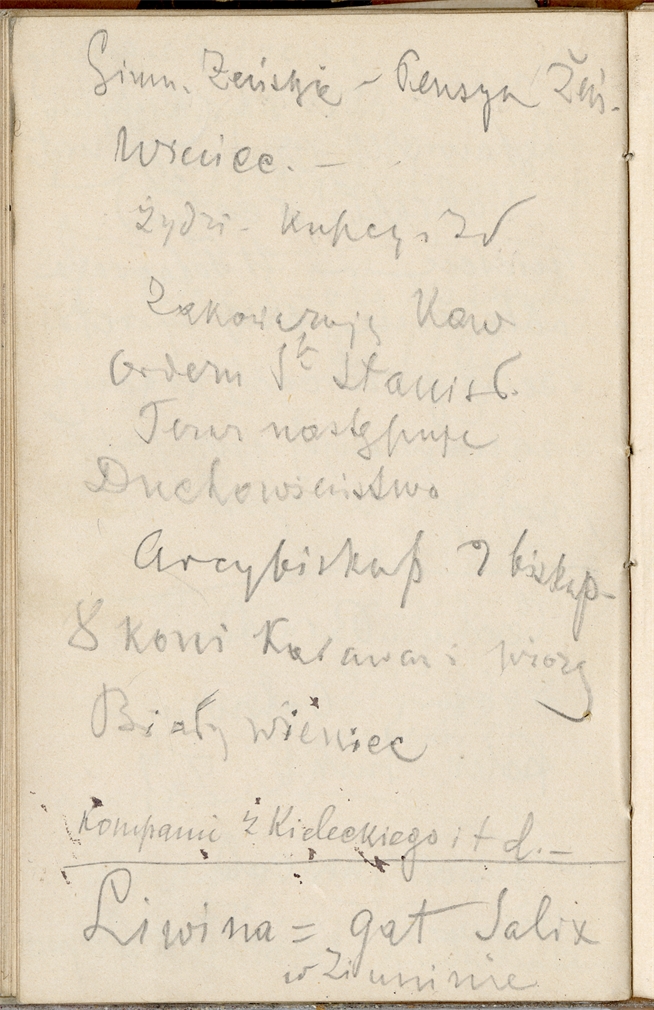 Gimn. Żeńskie – Pensya Żeń.
Wieniec. –
Żydzi – Kupcy i
Kaw
Ordern Sto Stanisł.
Teraz następuje
Duchowieństwo
Arcybiskup 2 biskup–
8 koni Karawan i wiozą
Biały wieniec
Kompanii z Kieleckiego i t d. –
Liwina = gat Salix
w Ziminie